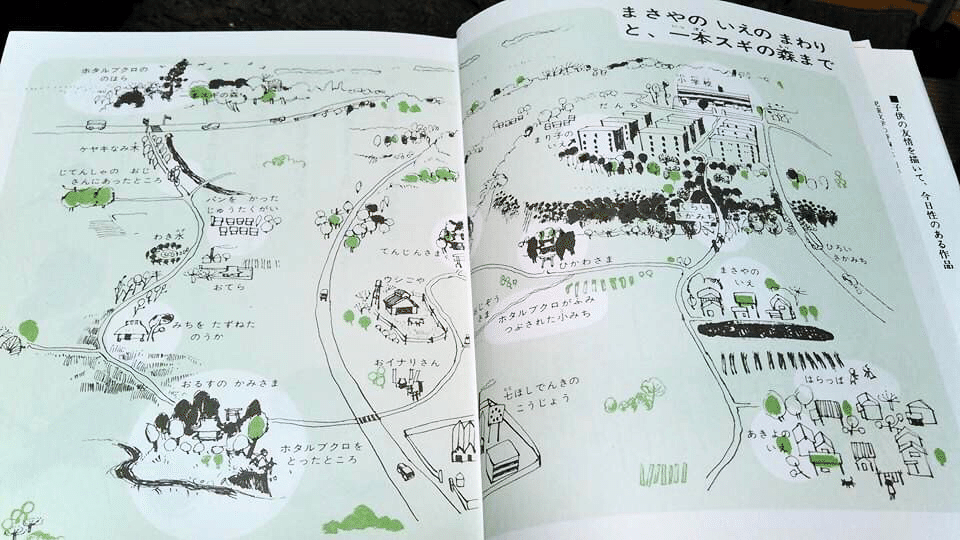 まさやの いえの まわり
と、一本スギの森まで
ホタルブクロの
のはら
ケヤキなみ木
じてんしゃの おじ
さんにあったところ
パンを かった
じゅうたくがい
わき水
おてら
みちを たずねた
のうか
おるすの かみさま
ホタルブクロを
とったところ
てんじんさま
ウシごや
おイナリさん
小学校
だんち
まり子の
いえ
くらい
さかみち
ひろい
さかみち
ひかわさま
ホタルブクロがふみ
つぶされた小みち
まさやの
いえ
七ほしでんきの
こうじょう
はらっぱ
あきよの
いえ
■子供の友情を描いて、今日性のある作品